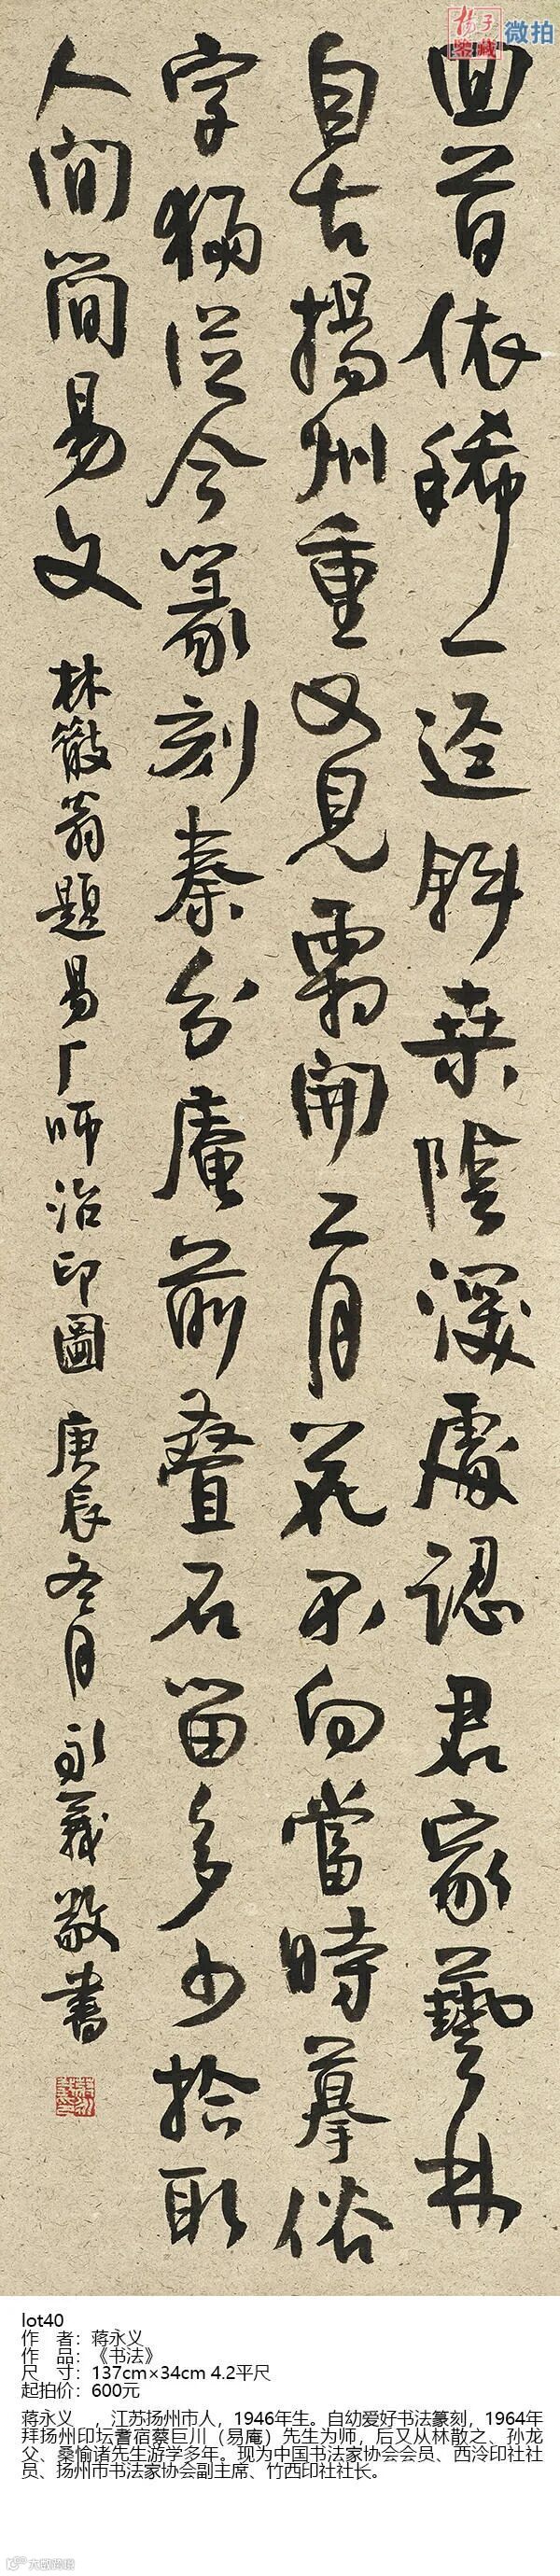 扬子
鉴藏
微拍
回首依稀一迳斜桑陰深處認君家藝林
自古揚州重又見霜開二月花不向當時摹俗
字獨從今篆刻秦分庵前叠石留多少拾取
人間簡易文
林散翁題易厂師治印圖 庚辰冬月 永義敬書
lot40
作 者：蒋永义
作 品：《书法》
尺 寸：137cm×34cm 4.2平尺
起拍价：600元
蒋永义 ，江苏扬州市人，1946年生。自幼爱好书法篆刻，1964年
拜扬州印坛耆宿蔡巨川（易庵）先生为师，后又从林散之、孙龙
父、桑愉诸先生游学多年。现为中国书法家协会会员、西泠印社社
员、扬州市书法家协会副主席、竹西印社社长。